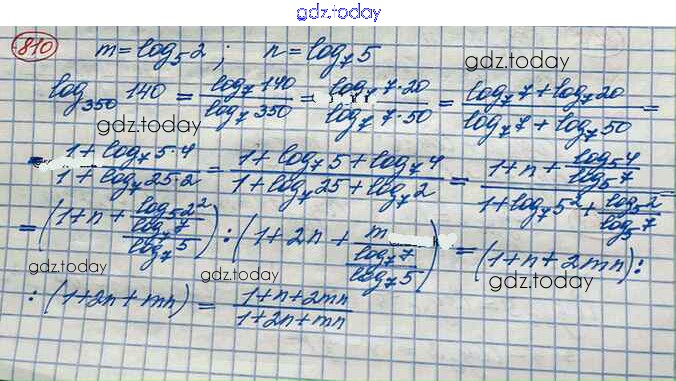 gdz.today
810 m = log₅2 ; n = log₇5
gdz.today
log₃₅₀ 140 = log₇140 / log₇350 = log₇ 7·20 / log₇ 7·50 = (log₇7 + log₇20) / (log₇7 + log₇50) =
gdz.today
= (1 + log₇5·4) / (1 + log₇25·2) = (1 + log₇5 + log₇4) / (1 + log₇25 + log₇2) = (1 + n + log₅4 / log₅7) / (1 + log₇5² + log₅2 / log₅7)
= (1 + n + log₅2² / (log₇7 / log₇5)) : (1 + 2n + m / (log₇7 / log₇5)) = (1 + n + 2mn) :
gdz.today
gdz.today
: (1 + 2n + mn) = (1 + n + 2mn) / (1 + 2n + mn)